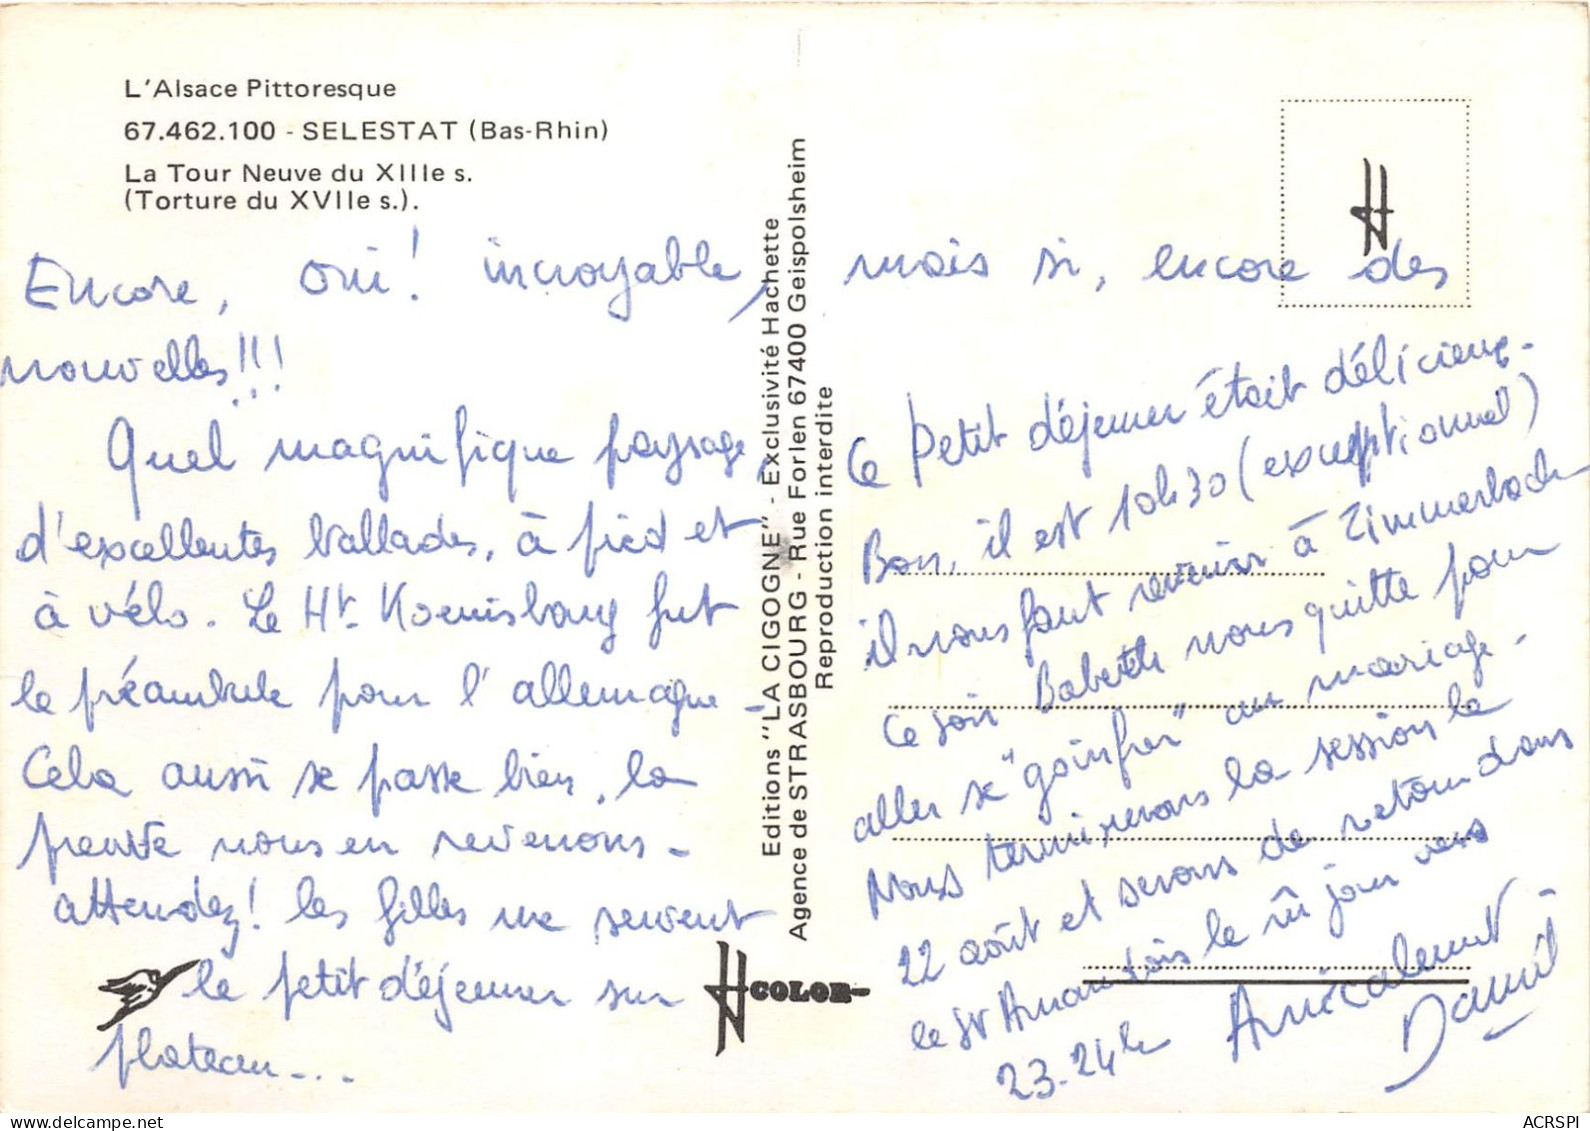 L'Alsace Pittoresque
67.462.100 - SELESTAT (Bas-Rhin)
La Tour Neuve du XIIIe s.
(Torture du XVIIe s.).
Encore, oui! incroyable, mais si, encore des
nouvelles!!!
Quel magnifique paysage,
d'excellentes ballades, à pied et
à vélo. Le Ht. Koenisbourg fut
le préambule pour l'allemagne -
Cela aussi se passe bien, la
preuve nous en revenons -
attendez! les filles me servent
le petit déjeuner sur
plateau...
Editions "LA CIGOGNE" - Exclusivité Hachette
Agence de STRASBOURG - Rue Forlen 67400 Geispolsheim
Reproduction interdite
H COLOR
Ce Petit déjeuner était délicieux -
Bon, il est 10h30 (exceptionnel)
il nous faut revenir à Zimmerbach
Ce soir Babeth nous quitte pour
aller se "goinfrer" au mariage -
Nous terminerons la session le
22 août et serons de retour dans
le St Amandois le jour vers
23-24h Amicalement
ACRSPI